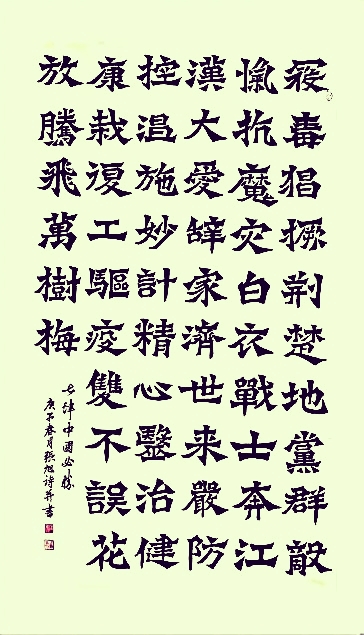 疫毒猖獗荆楚地黨群敵
愾抗魔灾白衣戰士奔江
漢大愛辭家濟世来嚴防
控温施妙計精心醫治健
康栽復工驅疫雙不誤花
放騰飛萬樹梅
七律中國必勝
庚子春月張旭詩并書